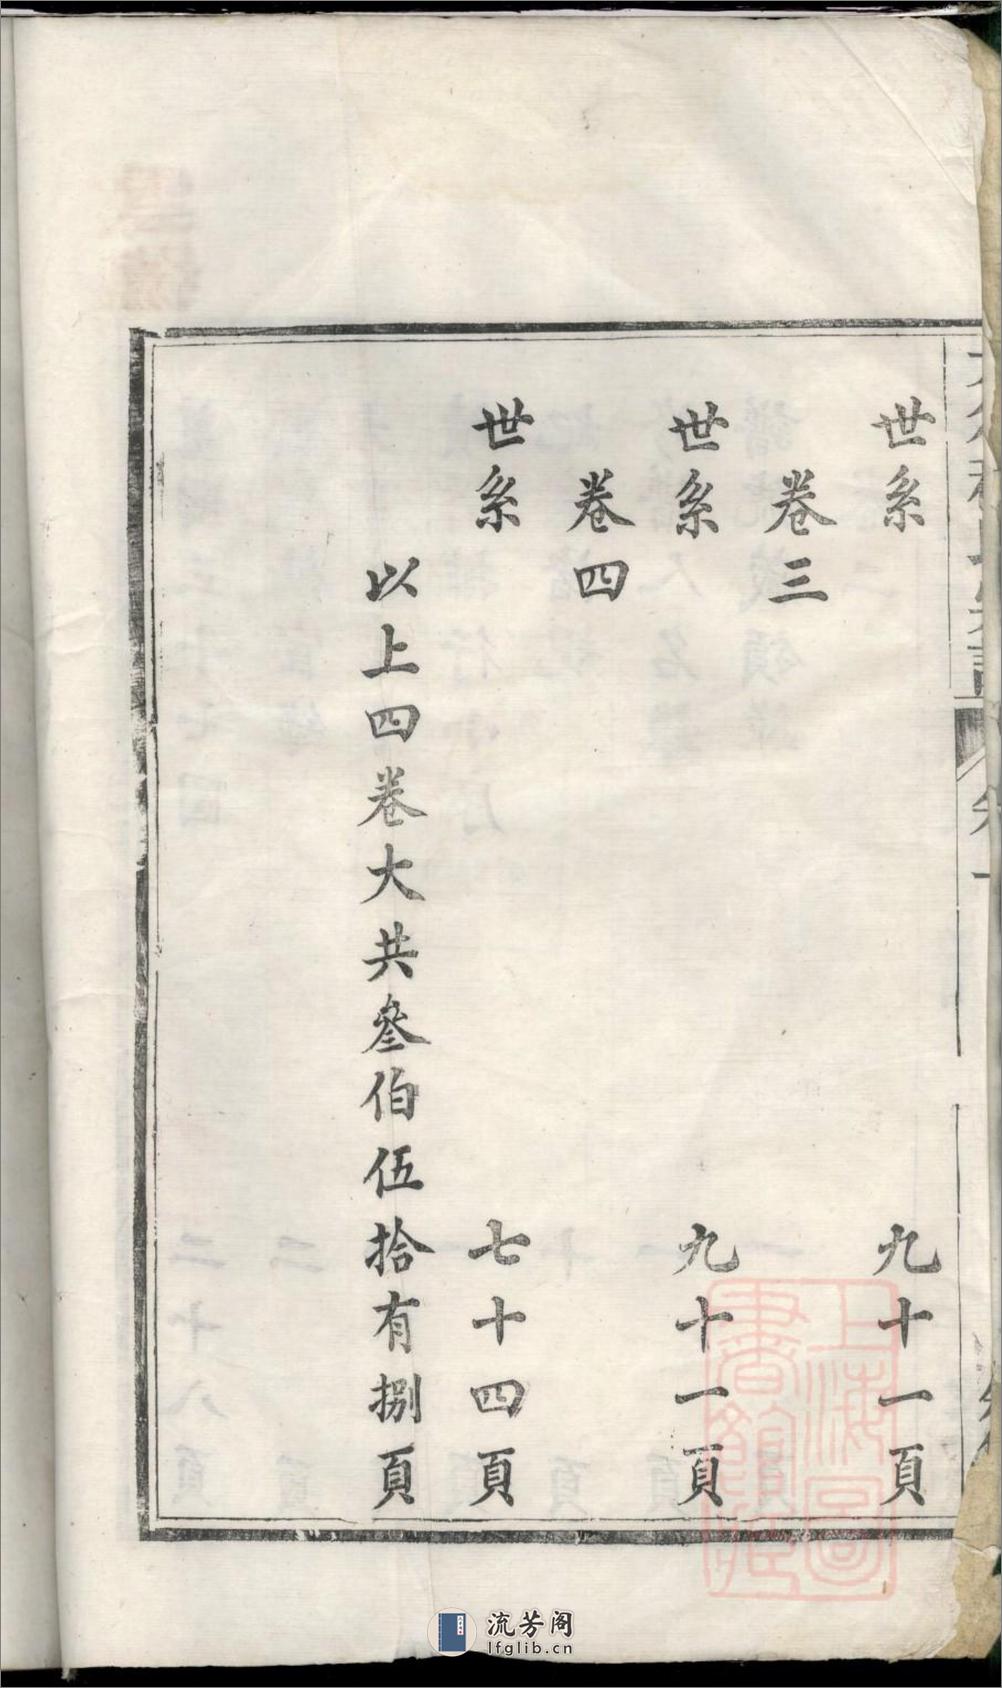 世系 九十一頁
卷三
世系 九十一頁
卷四
世系 七十四頁
以上四卷大共叄伯伍拾有捌頁
上海圖
書館藏
流芳阁
lfglib.cn